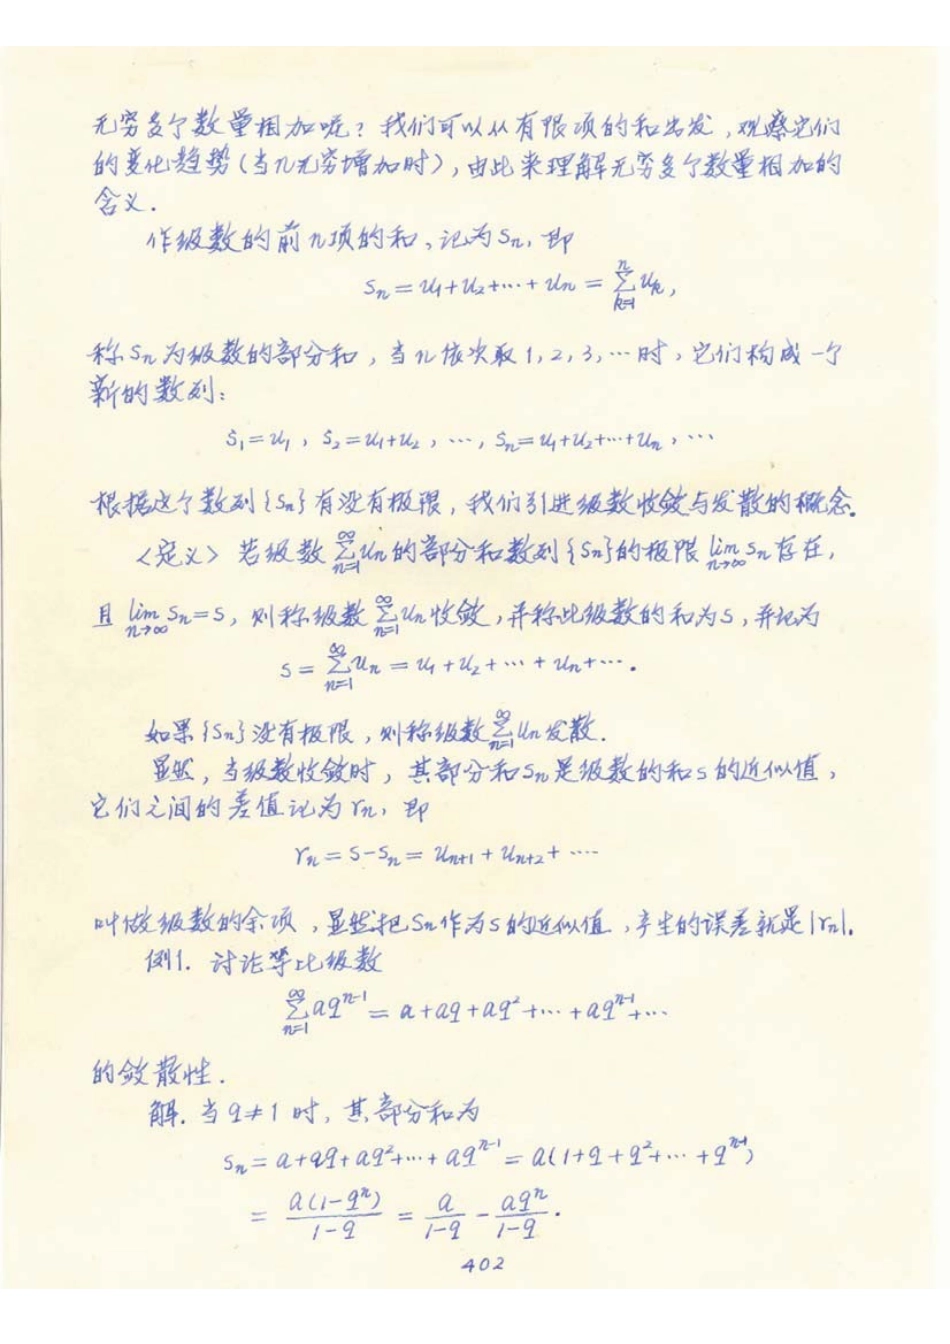 无穷多个数量相加呢？我们可以从有限项的和出发，观察它们
的变化趋势(当n无穷增加时)，由此来理解无穷多个数量相加的
含义.
作级数的前n项的和，记为Sn，即
Sn = u₁+u₂+⋯+un = ∑_{k=1}^{n} uk，
称Sn为级数的部分和，当n依次取1，2，3，⋯时，它们构成一个
新的数列：
S₁=u₁，S₂=u₁+u₂，⋯，Sn=u₁+u₂+⋯+un，⋯
根据这个数列{Sn}有没有极限，我们引进级数收敛与发散的概念.
<定义> 若级数∑_{n=1}^{∞} un的部分和数列{Sn}的极限lim_{n→∞} Sn存在，
且 lim_{n→∞} Sn=S，则称级数∑_{n=1}^{∞} un收敛，并称此级数的和为S，并记为
S = ∑_{n=1}^{∞} un = u₁+u₂+⋯+un+⋯.
如果{Sn}没有极限，则称级数∑_{n=1}^{∞} un发散.
显然，当级数收敛时，其部分和Sn是级数的和S的近似值，
它们之间的差值记为rn，即
rn = S-Sn = u_{n+1} + u_{n+2} + ⋯
叫做级数的余项，显然把Sn作为S的近似值，产生的误差就是|rn|.
例1. 讨论等比级数
∑_{n=1}^{∞} aq^{n-1} = a+aq+aq²+⋯+aq^{n-1}+⋯
的敛散性.
解. 当q≠1时，其部分和为
Sn = a+aq+aq²+⋯+aq^{n-1} = a(1+q+q²+⋯+q^{n-1})
= a(1-qⁿ)/(1-q) = a/(1-q) - aqⁿ/(1-q).
402